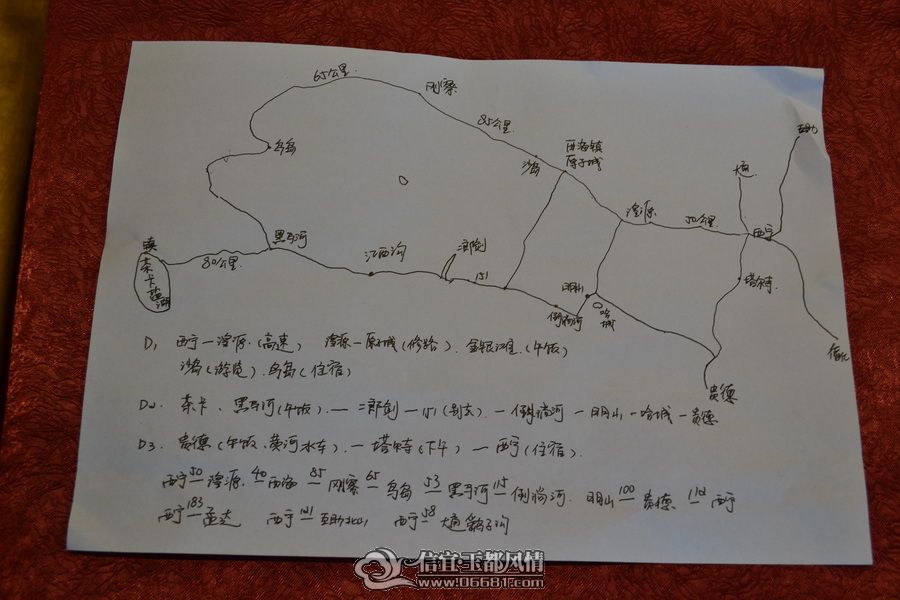 65公里
刚察
85公里
互助
沙岛
西海镇
原子城
大通
鸟岛
湟源
50公里
西宁
黑马河
镇
茶卡盐湖
80公里
江西沟
二郎剑
151
塔尔寺
日月山
倒淌河
哈城
循化
贵德
D1 西宁—湟源(高速) 湟源—原子城(修路)、金银滩(午饭)
沙岛(游览)、鸟岛(住宿)
D2、茶卡、黑马河(午饭)、—二郎剑—151(别去)、—倒淌河—日月山—哈城—贵德
D3、贵德(午饭、黄河水车)、—塔尔寺(下午)—西宁(住宿)、
西宁50湟源、40西海85刚察65鸟岛53黑马河115倒淌河、日月山100贵德112西宁
西宁183孟达 西宁101互助北山 西宁58大通鹞子沟
信宜玉都风情
www.06681.com